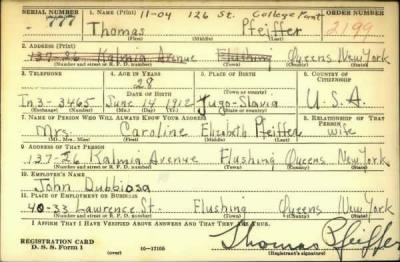 SERIAL NUMBER 1. NAME (Print) 11-04 126 St. College Point ORDER NUMBER
777 Thomas Pfeiffer 2199
(First) (Middle) (Last)
2. ADDRESS (Print)
137-26 Kalmia Avenue Flushing Queens New York
(Number and street or R. F. D. number) (Town) (County) (State)
3. TELEPHONE 4. AGE IN YEARS 5. PLACE OF BIRTH 6. COUNTRY OF CITIZENSHIP
28
DATE OF BIRTH (Town or county)
In 3-3465 June 14 1912 Jugo-Slavia U.S.A.
(Exchange) (Number) (Mo.) (Day) (Yr.) (State or country)
7. NAME OF PERSON WHO WILL ALWAYS KNOW YOUR ADDRESS 8. RELATIONSHIP OF THAT PERSON
Mrs. Caroline Elizabeth Pfeiffer wife
(Mr., Mrs., Miss) (First) (Middle) (Last)
9. ADDRESS OF THAT PERSON
137-26 Kalmia Avenue Flushing Queens New York
(Number and street or R. F. D. number) (Town) (County) (State)
10. EMPLOYER'S NAME
John Dubbiosa
11. PLACE OF EMPLOYMENT OR BUSINESS
40-33 Lawrence St. Flushing Queens New York
(Number and street or R. F. D. number) (Town) (County) (State)
I AFFIRM THAT I HAVE VERIFIED ABOVE ANSWERS AND THAT THEY ARE TRUE.
REGISTRATION CARD
D. S. S. Form 1 (over) 16-17105
Thomas Pfeiffer
(Registrant's signature)